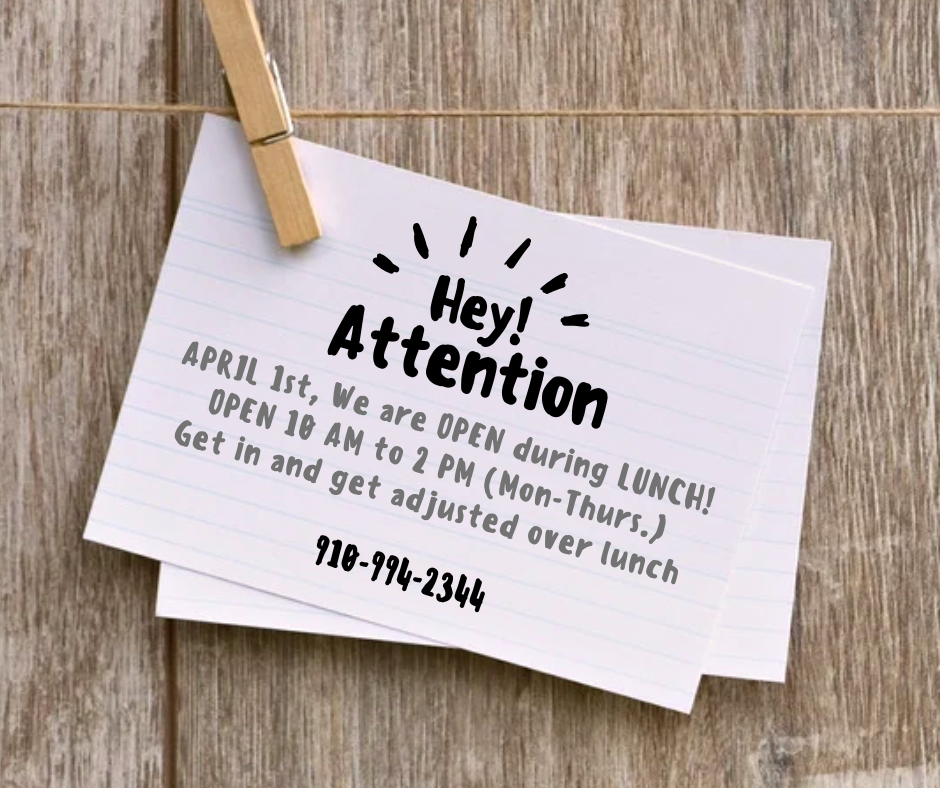 Hey!
Attention
APRIL 1st, We are OPEN during LUNCH!
OPEN 10 AM to 2 PM (Mon-Thurs.)
Get in and get adjusted over lunch
910-994-2344